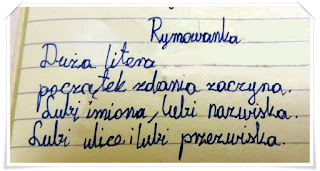 Rymowanka
Duża litera
początek zdania zaczyna.
Lubi imiona, lubi nazwiska.
Lubi ulice i lubi przezwiska.